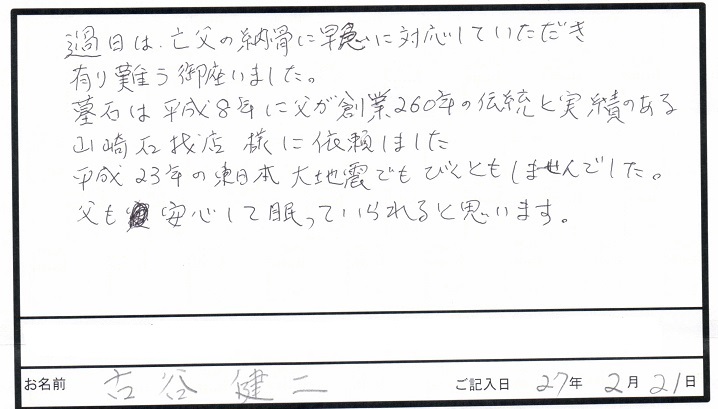 過日は、亡父の納骨に早急に対応していただき
有り難う御座いました。
墓石は平成8年に父が創業260年の伝統と実績のある
山崎石材店 様に依頼しました
平成23年の東日本大地震でもびくともしませんでした。
父も安心して眠っていられると思います。
お名前 古谷健二 ご記入日 27年 2月 21日